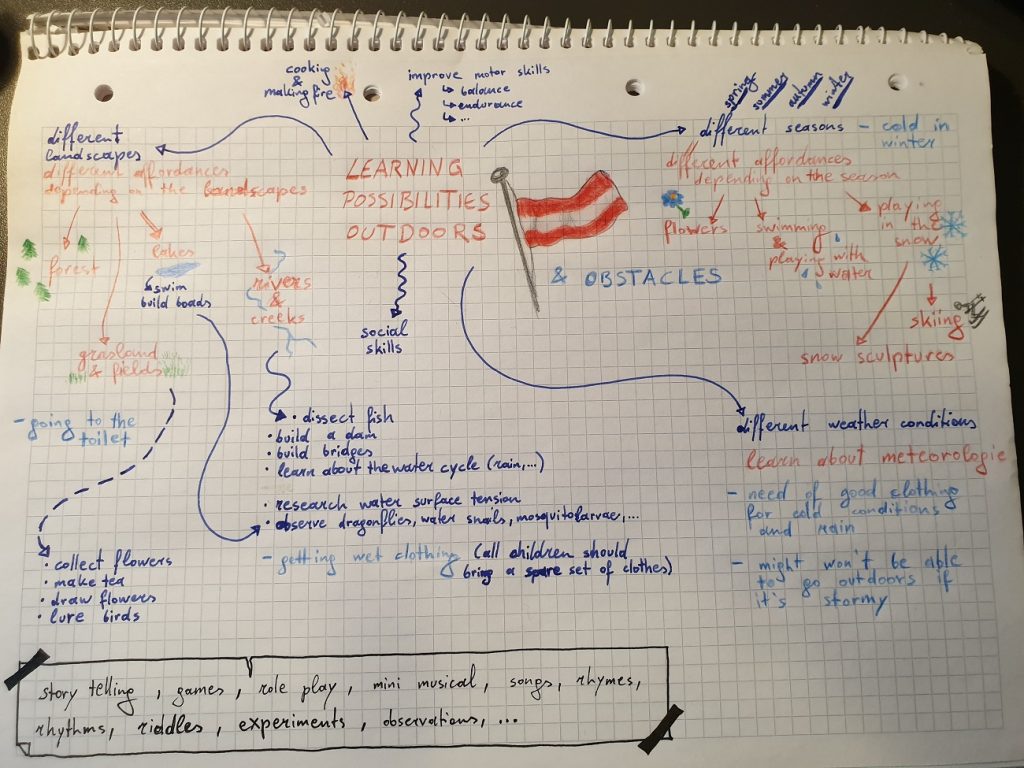 cooking
&
making fire
improve motor skills
↳ balance
↳ endurance
↳ ...
spring
summer
autumn
winter
different
landscapes
different affordances
depending on the landscapes
LEARNING
POSSIBILITIES
OUTDOORS
& OBSTACLES
different seasons
- cold in
winter
different affordances
depending on the season
flowers
swimming
&
playing with
water
playing
in the
snow
skiing
snow sculptures
forest
lakes
swim
build boads
rivers
&
creeks
grasland
& fields
social
skills
- going to the
toilet
• dissect fish
• build a dam
• build bridges
• learn about the water cycle (rain,...)
• research water surface tension
• observe dragonflies, water snails, mosquitolarvae, ...
- getting wet clothing (all children should
bring a spare set of clothes)
different weather conditions
learn about meteorologie
- need of good clothing
for cold conditions
and rain
- might won't be able
to go outdoors if
it's stormy
• collect flowers
• make tea
• draw flowers
• lure birds
story telling, games, role play, mini musical, songs, rhymes,
rhythms, riddles, experiments, observations, ...